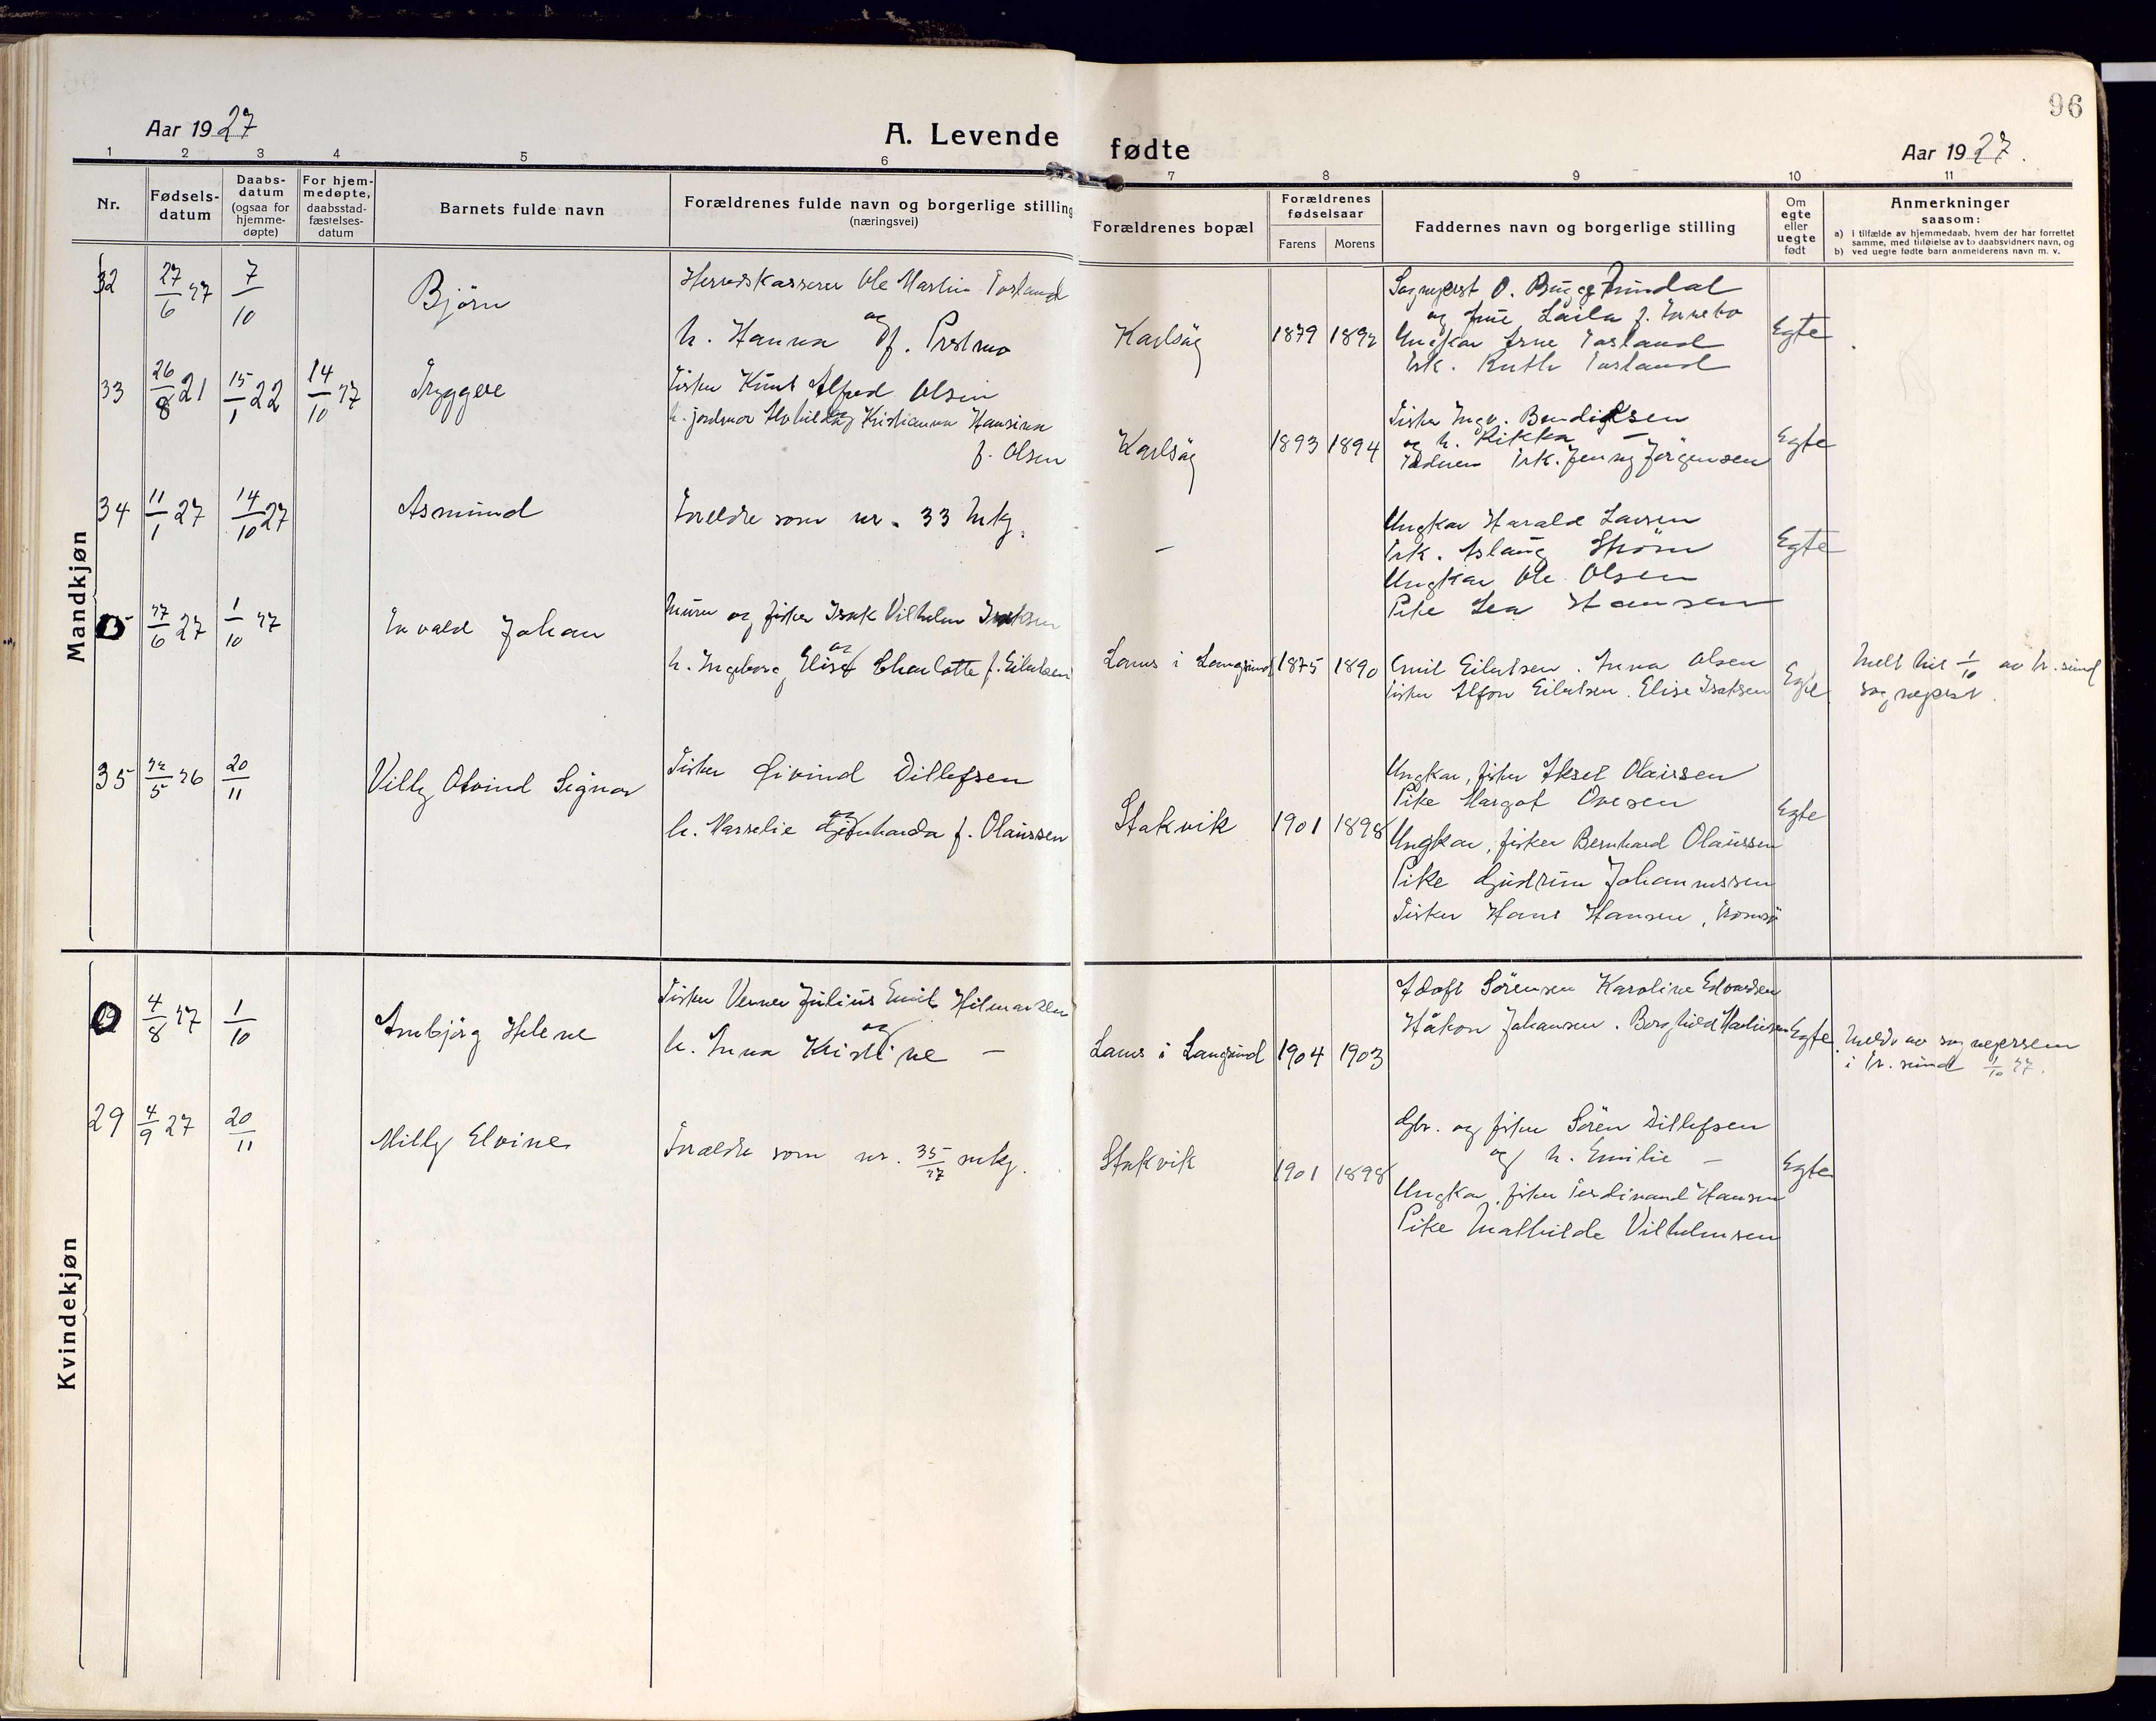 96
Aar 1927
A. Levende fødte
Aar 1927.
1 2 3 4 5 6 7 8 9 10 11
Nr.
Fødsels-
datum
Daabs-
datum
(ogsaa for
hjemme-
døpte)
For hjem-
medøpte,
daabsstad-
fæstelses-
datum
Barnets fulde navn
Forældrenes fulde navn og borgerlige stilling
(næringsvei)
Forældrenes bopæl
Forældrenes
fødselsaar
Farens Morens
Faddernes navn og borgerlige stilling
Om
egte
eller
uegte
født
Anmerkninger
saasom:
a) i tilfælde av hjemmedaab, hvem der har forrettet
samme, med tilføielse av to daabsvidners navn, og
b) ved uegte fødte barn anmelderens navn m. v.
Mandkjøn
32 27/6 27 7/10 Björn
Herredskasserer Ole Martin Torsland
og
h. Hanna f. Prestmo
Karlsöy 1879 1892
Sogneprest O. Bugge
og frue Laila f.
Ungkar Arne Torsland
Frk. Ruth Torsland
Egte
33 26/8 21 15/1 22 14/10 27 Tryggve
Fisker Knut Alfred Olsen
og
h. jordmor Kristianna Hansina
f. Olsen
Karlsöy 1893 1894
Fisker Ingv. Bendiksen
og h. Rikka —
Frk. Jenny Jörgensen
Egte
34 11/1 27 14/10 27 Asmund
Forældre som nr. 33 mkj.
—
Ungkar Harald Larsen
Frk. Aslaug Ström
Ungkar Ole Olsen
Pike Lea Hansen
Egte
27/6 27 1/10 27 Johan
og fisker Isak Vilhelm Isaksen
og
h. Ingeborg Elise Charlotte f. Eilertsen
Lanes i Langsund 1875 1890
Emil Eilertsen. Anna Olsen
Fisker Alfon Eilertsen. Elise Isaksen
Egte
Melt hit 1/10 av Tr. sund
sogneprest.
35 22/5 26 20/11 Villy Oivind Signar
Fisker Eivind Ditlefsen
og
h. Marselie f. Olaussen
Stakvik 1901 1898
Ungkar, fisker Aksel Olaissen
Pike Margot Ovesen
Ungkar, fisker Bernhard Olaussen
Pike Gudrun Johannessen
Fisker Hans Hansen, Tromsö
Egte
Kvindekjøn
4/8 27 1/10 Arnbjörg Helene
Fisker Verner Julius Emil Hilmarsen
og
h. Anna Kristine —
Lanes i Langsund 1904 1903
Adolf Sörensen Karoline Edvardsen
Håkon Johansen. Borghild
Egte
Meldt av sognepresten
i Tr. sund 1/10 27.
29 4/9 27 20/11 Milly Elvine
Forældre som nr. 35/27 mkj.
Stakvik 1901 1898
Gbr. og fisker Sören Ditlefsen
og h. Emilie —
Ungkar, fisker Ferdinand Hansen
Pike Mathilde Vilhelmsen
Egte